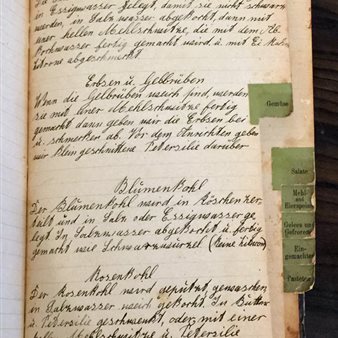 in Essigwasser gelegt, damit sie nicht schwarz
werden, in Salzwasser abgekocht, dann mit
einer hellen Mehlschwitze, die mit dem Ab-
kochwasser fertig gemacht wird u. mit Ei u.
Zitrone abgeschmeckt.
Erbsen u. Gelbrüben
Wenn die Gelbrüben weich sind, werden
sie mit einer Mehlschwitze fertig
gemacht dann geben wir die Erbsen bei
u. schmecken ab. Vor dem Anrichten geben
wir klein geschnittene Petersilie darüber
Blumenkohl
Der Blumenkohl wird in Röschen zer-
teilt und in Salz oder Essigwasser ge-
legt. In Salzwasser abgekocht u. fertig
gemacht wie Schwarzwurzel (keine Zitrone)
Rosenkohl
Der Rosenkohl wird geputzt, gewaschen
in Salzwasser weich gekocht. In Butter
u. Petersilie geschwenkt, oder mit einer
hellen Mehlschwitze u. Petersilie
Gemüse
Salate
Mehl-
und
Eierspeisen
Gelees und
Gefrorenes
Ein-
gemachtes
Pasteten